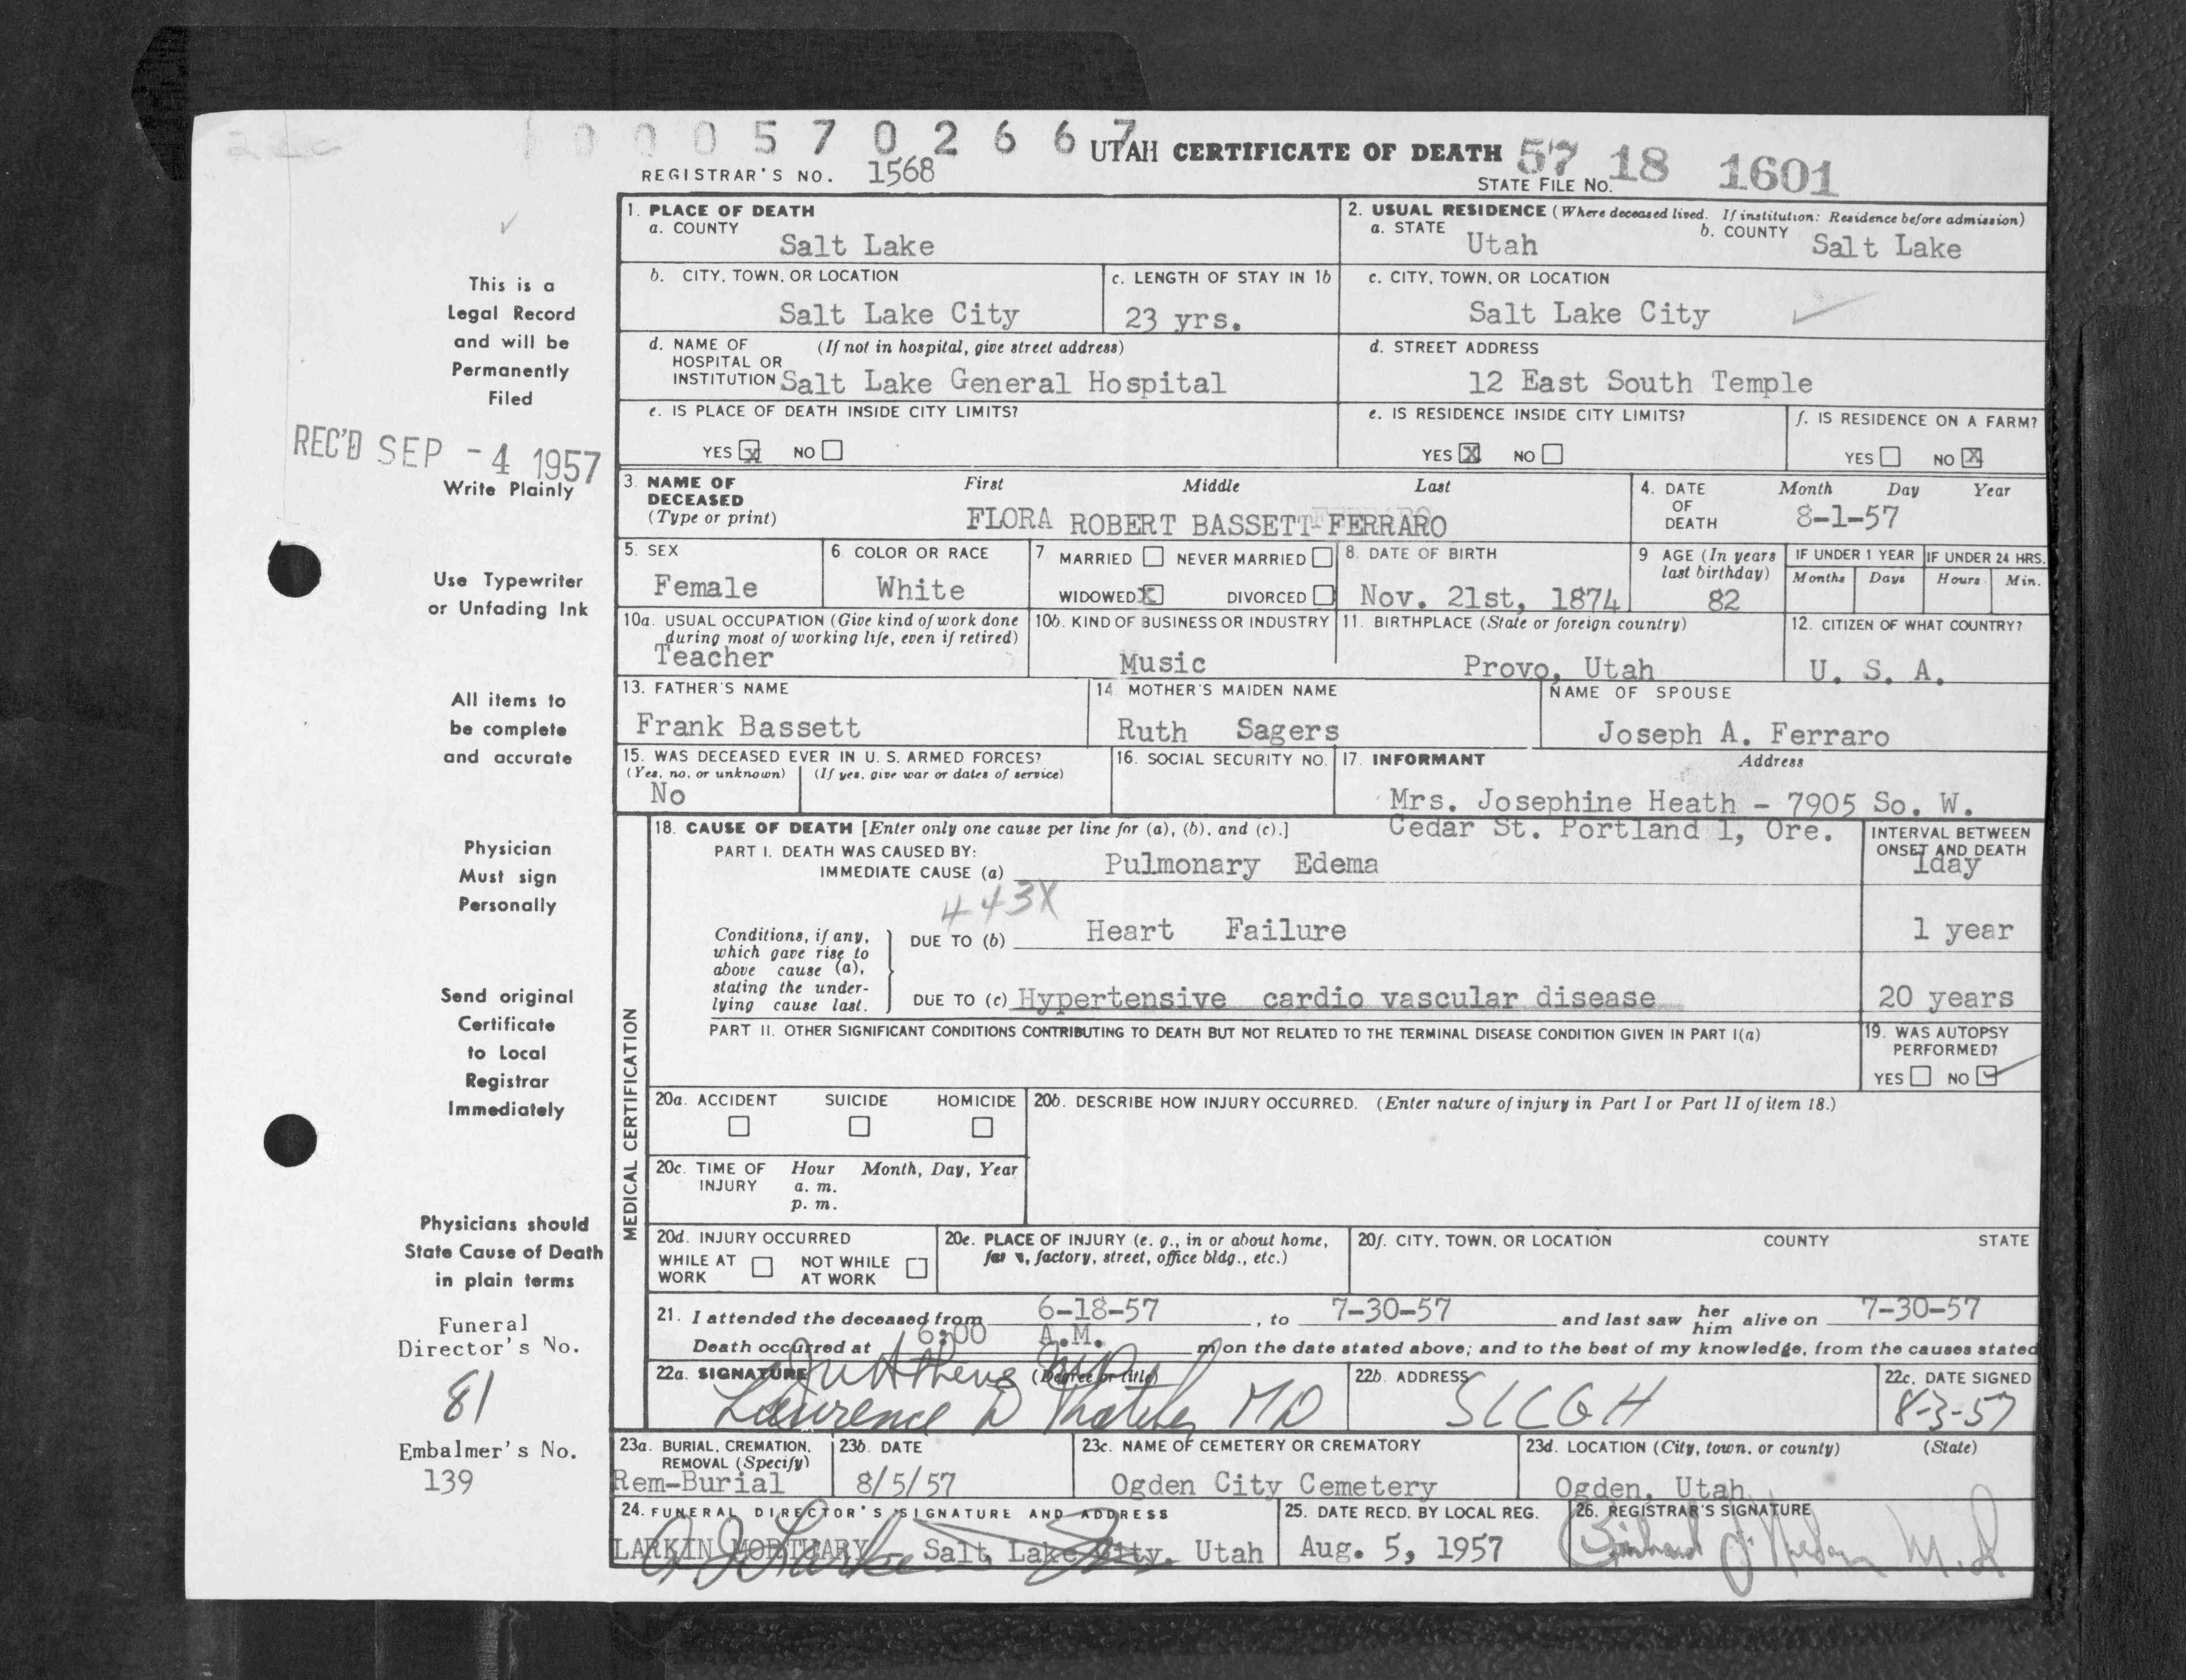 0 0 0 5 7 0 2 6 6 7
UTAH CERTIFICATE OF DEATH
REGISTRAR'S NO. 1568
STATE FILE NO. 57 18 1601
1. PLACE OF DEATH
a. COUNTY
Salt Lake
2. USUAL RESIDENCE (Where deceased lived. If institution: Residence before admission)
a. STATE Utah b. COUNTY Salt Lake
b. CITY, TOWN, OR LOCATION
Salt Lake City
c. LENGTH OF STAY IN 1b
23 yrs.
c. CITY, TOWN, OR LOCATION
Salt Lake City
d. NAME OF HOSPITAL OR INSTITUTION (If not in hospital, give street address)
Salt Lake General Hospital
d. STREET ADDRESS
12 East South Temple
e. IS PLACE OF DEATH INSIDE CITY LIMITS?
YES X NO
e. IS RESIDENCE INSIDE CITY LIMITS?
YES X NO
f. IS RESIDENCE ON A FARM?
YES NO X
3. NAME OF DECEASED (Type or print)
First Middle Last
FLORA ROBERT BASSETT FERRARO
4. DATE OF DEATH
Month Day Year
8-1-57
5. SEX
Female
6. COLOR OR RACE
White
7. MARRIED NEVER MARRIED
WIDOWED X DIVORCED
8. DATE OF BIRTH
Nov. 21st, 1874
9 AGE (In years last birthday)
82
IF UNDER 1 YEAR
Months Days
IF UNDER 24 HRS.
Hours Min.
10a. USUAL OCCUPATION (Give kind of work done during most of working life, even if retired)
Teacher
10b. KIND OF BUSINESS OR INDUSTRY
Music
11. BIRTHPLACE (State or foreign country)
Provo, Utah
12. CITIZEN OF WHAT COUNTRY?
U. S. A.
13. FATHER'S NAME
Frank Bassett
14. MOTHER'S MAIDEN NAME
Ruth Sagers
NAME OF SPOUSE
Joseph A. Ferraro
15. WAS DECEASED EVER IN U. S. ARMED FORCES?
(Yes, no, or unknown) (If yes, give war or dates of service)
No
16. SOCIAL SECURITY NO.
17. INFORMANT Address
Mrs. Josephine Heath - 7905 So. W.
Cedar St. Portland 1, Ore.
MEDICAL CERTIFICATION
18. CAUSE OF DEATH [Enter only one cause per line for (a), (b), and (c).]
PART I. DEATH WAS CAUSED BY:
IMMEDIATE CAUSE (a) Pulmonary Edema
INTERVAL BETWEEN ONSET AND DEATH
1day
443X
Conditions, if any, which gave rise to above cause (a), stating the underlying cause last.
DUE TO (b) Heart Failure
1 year
DUE TO (c) Hypertensive cardio vascular disease
20 years
PART II. OTHER SIGNIFICANT CONDITIONS CONTRIBUTING TO DEATH BUT NOT RELATED TO THE TERMINAL DISEASE CONDITION GIVEN IN PART I(a)
19. WAS AUTOPSY PERFORMED?
YES NO
20a. ACCIDENT SUICIDE HOMICIDE
20b. DESCRIBE HOW INJURY OCCURRED. (Enter nature of injury in Part I or Part II of item 18.)
20c. TIME OF INJURY Hour Month, Day, Year
a. m.
p. m.
20d. INJURY OCCURRED
WHILE AT WORK NOT WHILE AT WORK
20e. PLACE OF INJURY (e. g., in or about home, farm, factory, street, office bldg., etc.)
20f. CITY, TOWN, OR LOCATION COUNTY STATE
21. I attended the deceased from 6-18-57, to 7-30-57 and last saw her him alive on 7-30-57
Death occurred at 6:00 A.M. m on the date stated above; and to the best of my knowledge, from the causes stated
22a. SIGNATURE (Degree or title)
Lawrence D Thatcher MD
22b. ADDRESS
SLCGH
22c. DATE SIGNED
8-3-57
23a. BURIAL, CREMATION, REMOVAL (Specify)
Rem-Burial
23b. DATE
8/5/57
23c. NAME OF CEMETERY OR CREMATORY
Ogden City Cemetery
23d. LOCATION (City, town, or county) (State)
Ogden, Utah
24. FUNERAL DIRECTOR'S SIGNATURE AND ADDRESS
LARKIN MORTUARY - Salt Lake City, Utah
25. DATE RECD. BY LOCAL REG.
Aug. 5, 1957
26. REGISTRAR'S SIGNATURE
M.D
This is a
Legal Record
and will be
Permanently
Filed
REC'D SEP -4 1957
Write Plainly
Use Typewriter
or Unfading Ink
All items to
be complete
and accurate
Physician
Must sign
Personally
Send original
Certificate
to Local
Registrar
Immediately
Physicians should
State Cause of Death
in plain terms
Funeral
Director's No.
81
Embalmer's No.
139